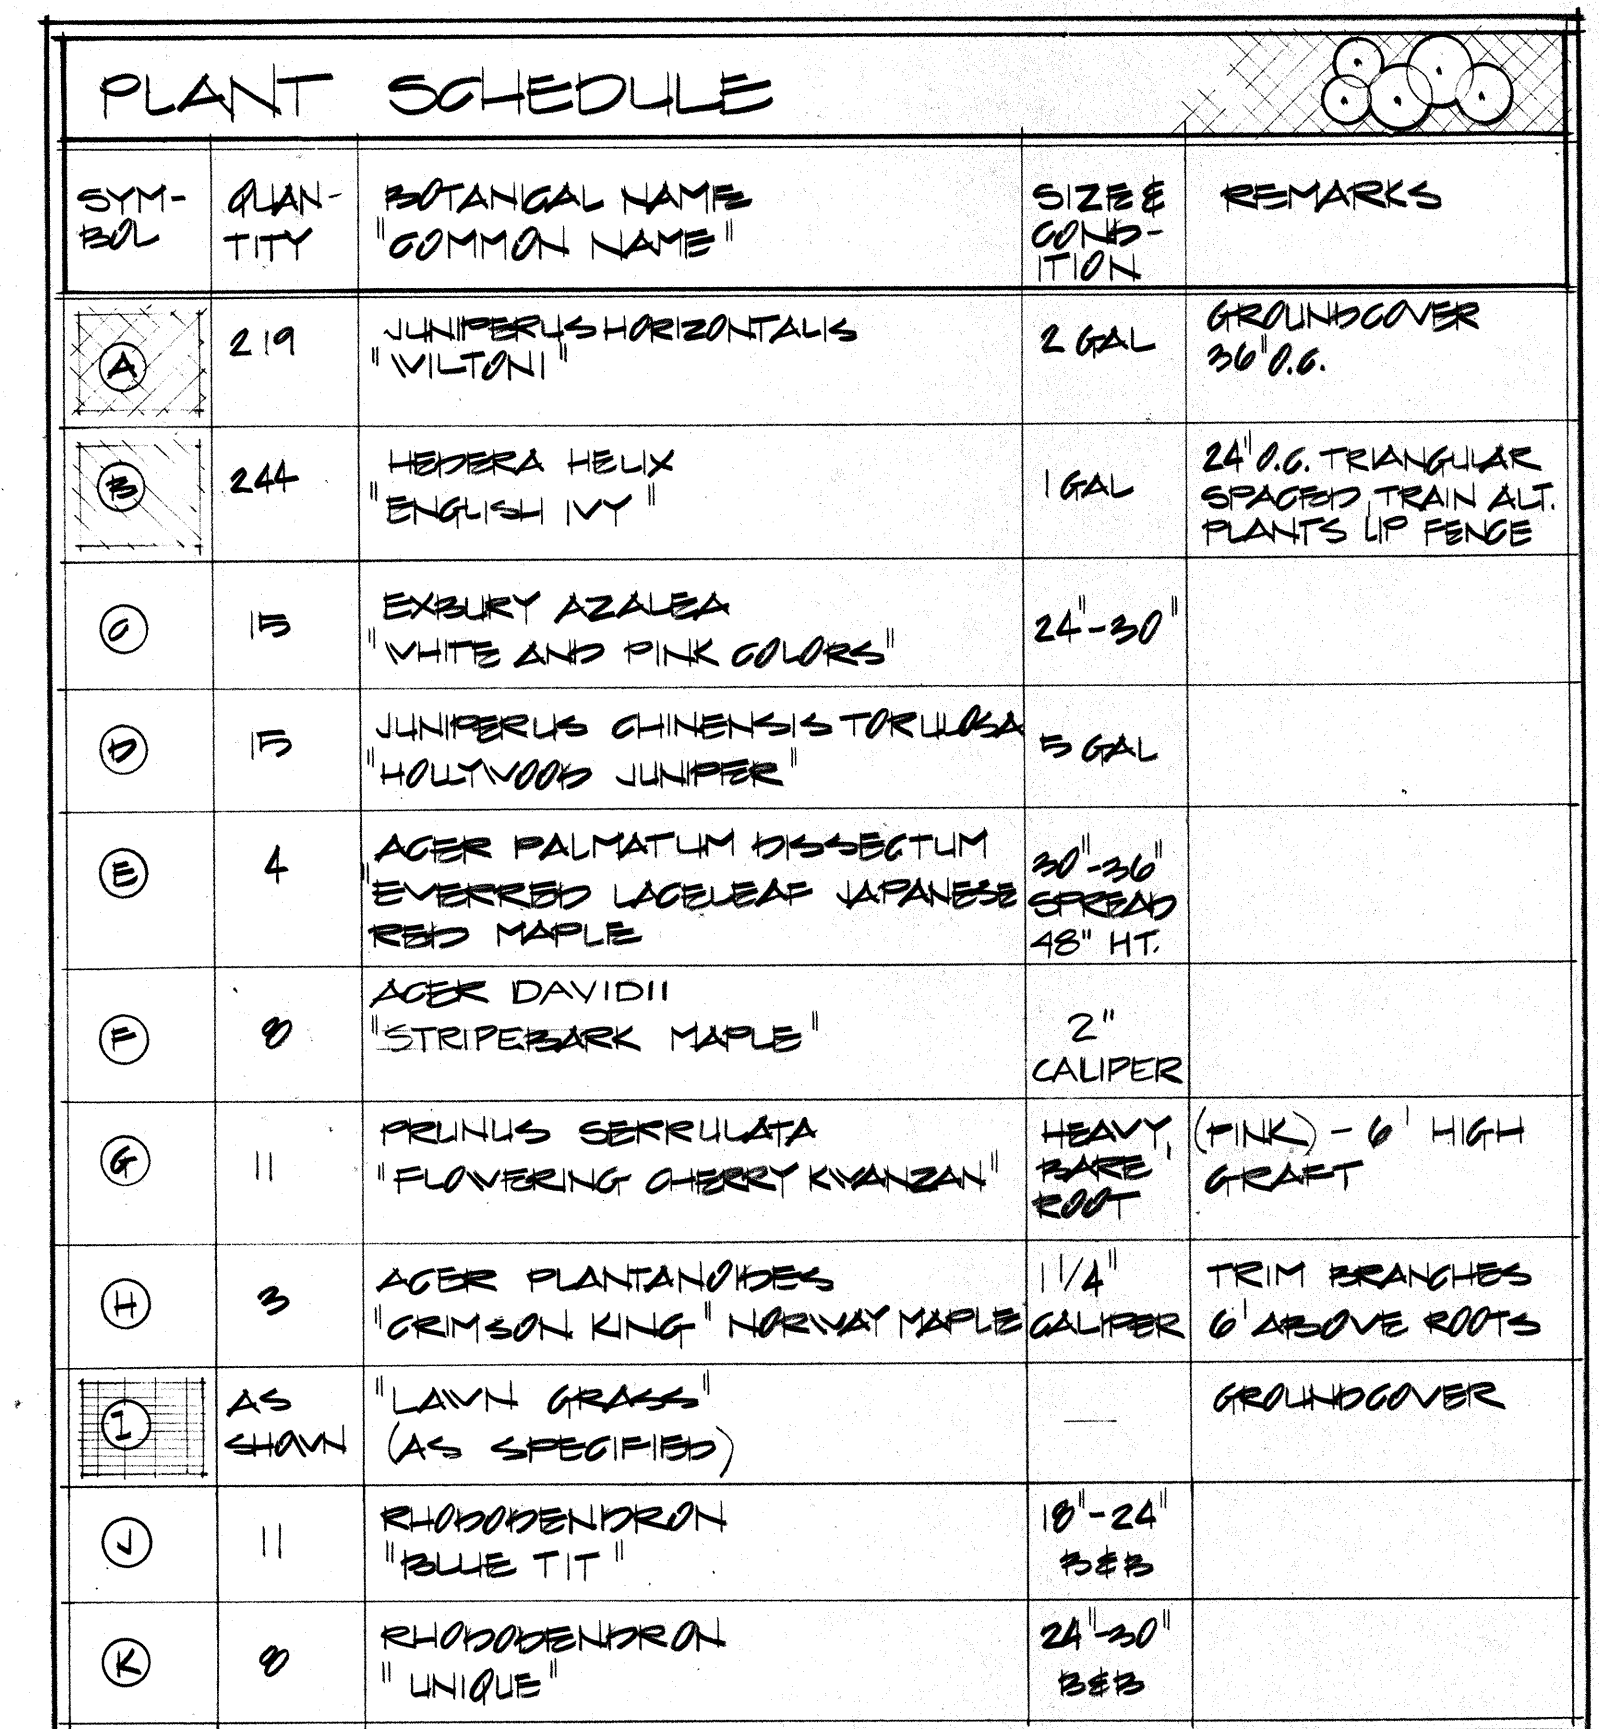 PLANT SCHEDULE
SYM-
BOL
QUAN-
TITY
BOTANICAL NAME
"COMMON NAME"
SIZE &
COND-
ITION
REMARKS
A
219
JUNIPERUS HORIZONTALIS
"WILTONI"
2 GAL
GROUNDCOVER
36" O.C.
B
244
HEDERA HELIX
"ENGLISH IVY"
1 GAL
24" O.C. TRIANGULAR
SPACED, TRAIN ALT.
PLANTS UP FENCE
C
15
EXBURY AZALEA
"WHITE AND PINK COLORS"
24"-30"
D
15
JUNIPERUS CHINENSIS TORULOSA
"HOLLYWOOD JUNIPER"
5 GAL
E
4
ACER PALMATUM DISSECTUM
"EVERRED LACELEAF JAPANESE
RED MAPLE
30"-36"
SPREAD
48" HT.
F
8
ACER DAVIDII
"STRIPEBARK MAPLE"
2"
CALIPER
G
11
PRUNUS SERRULATA
"FLOWERING CHERRY KWANZAN"
HEAVY,
BARE
ROOT
(PINK) - 6' HIGH
GRAFT
H
3
ACER PLANTANOIDES
"CRIMSON KING" NORWAY MAPLE
1 1/4"
CALIPER
TRIM BRANCHES
6' ABOVE ROOTS
I
AS
SHOWN
"LAWN GRASS"
(AS SPECIFIED)
—
GROUNDCOVER
J
11
RHODODENDRON
"BLUE TIT"
18"-24"
B&B
K
8
RHODODENDRON
"UNIQUE"
24"-30"
B&B